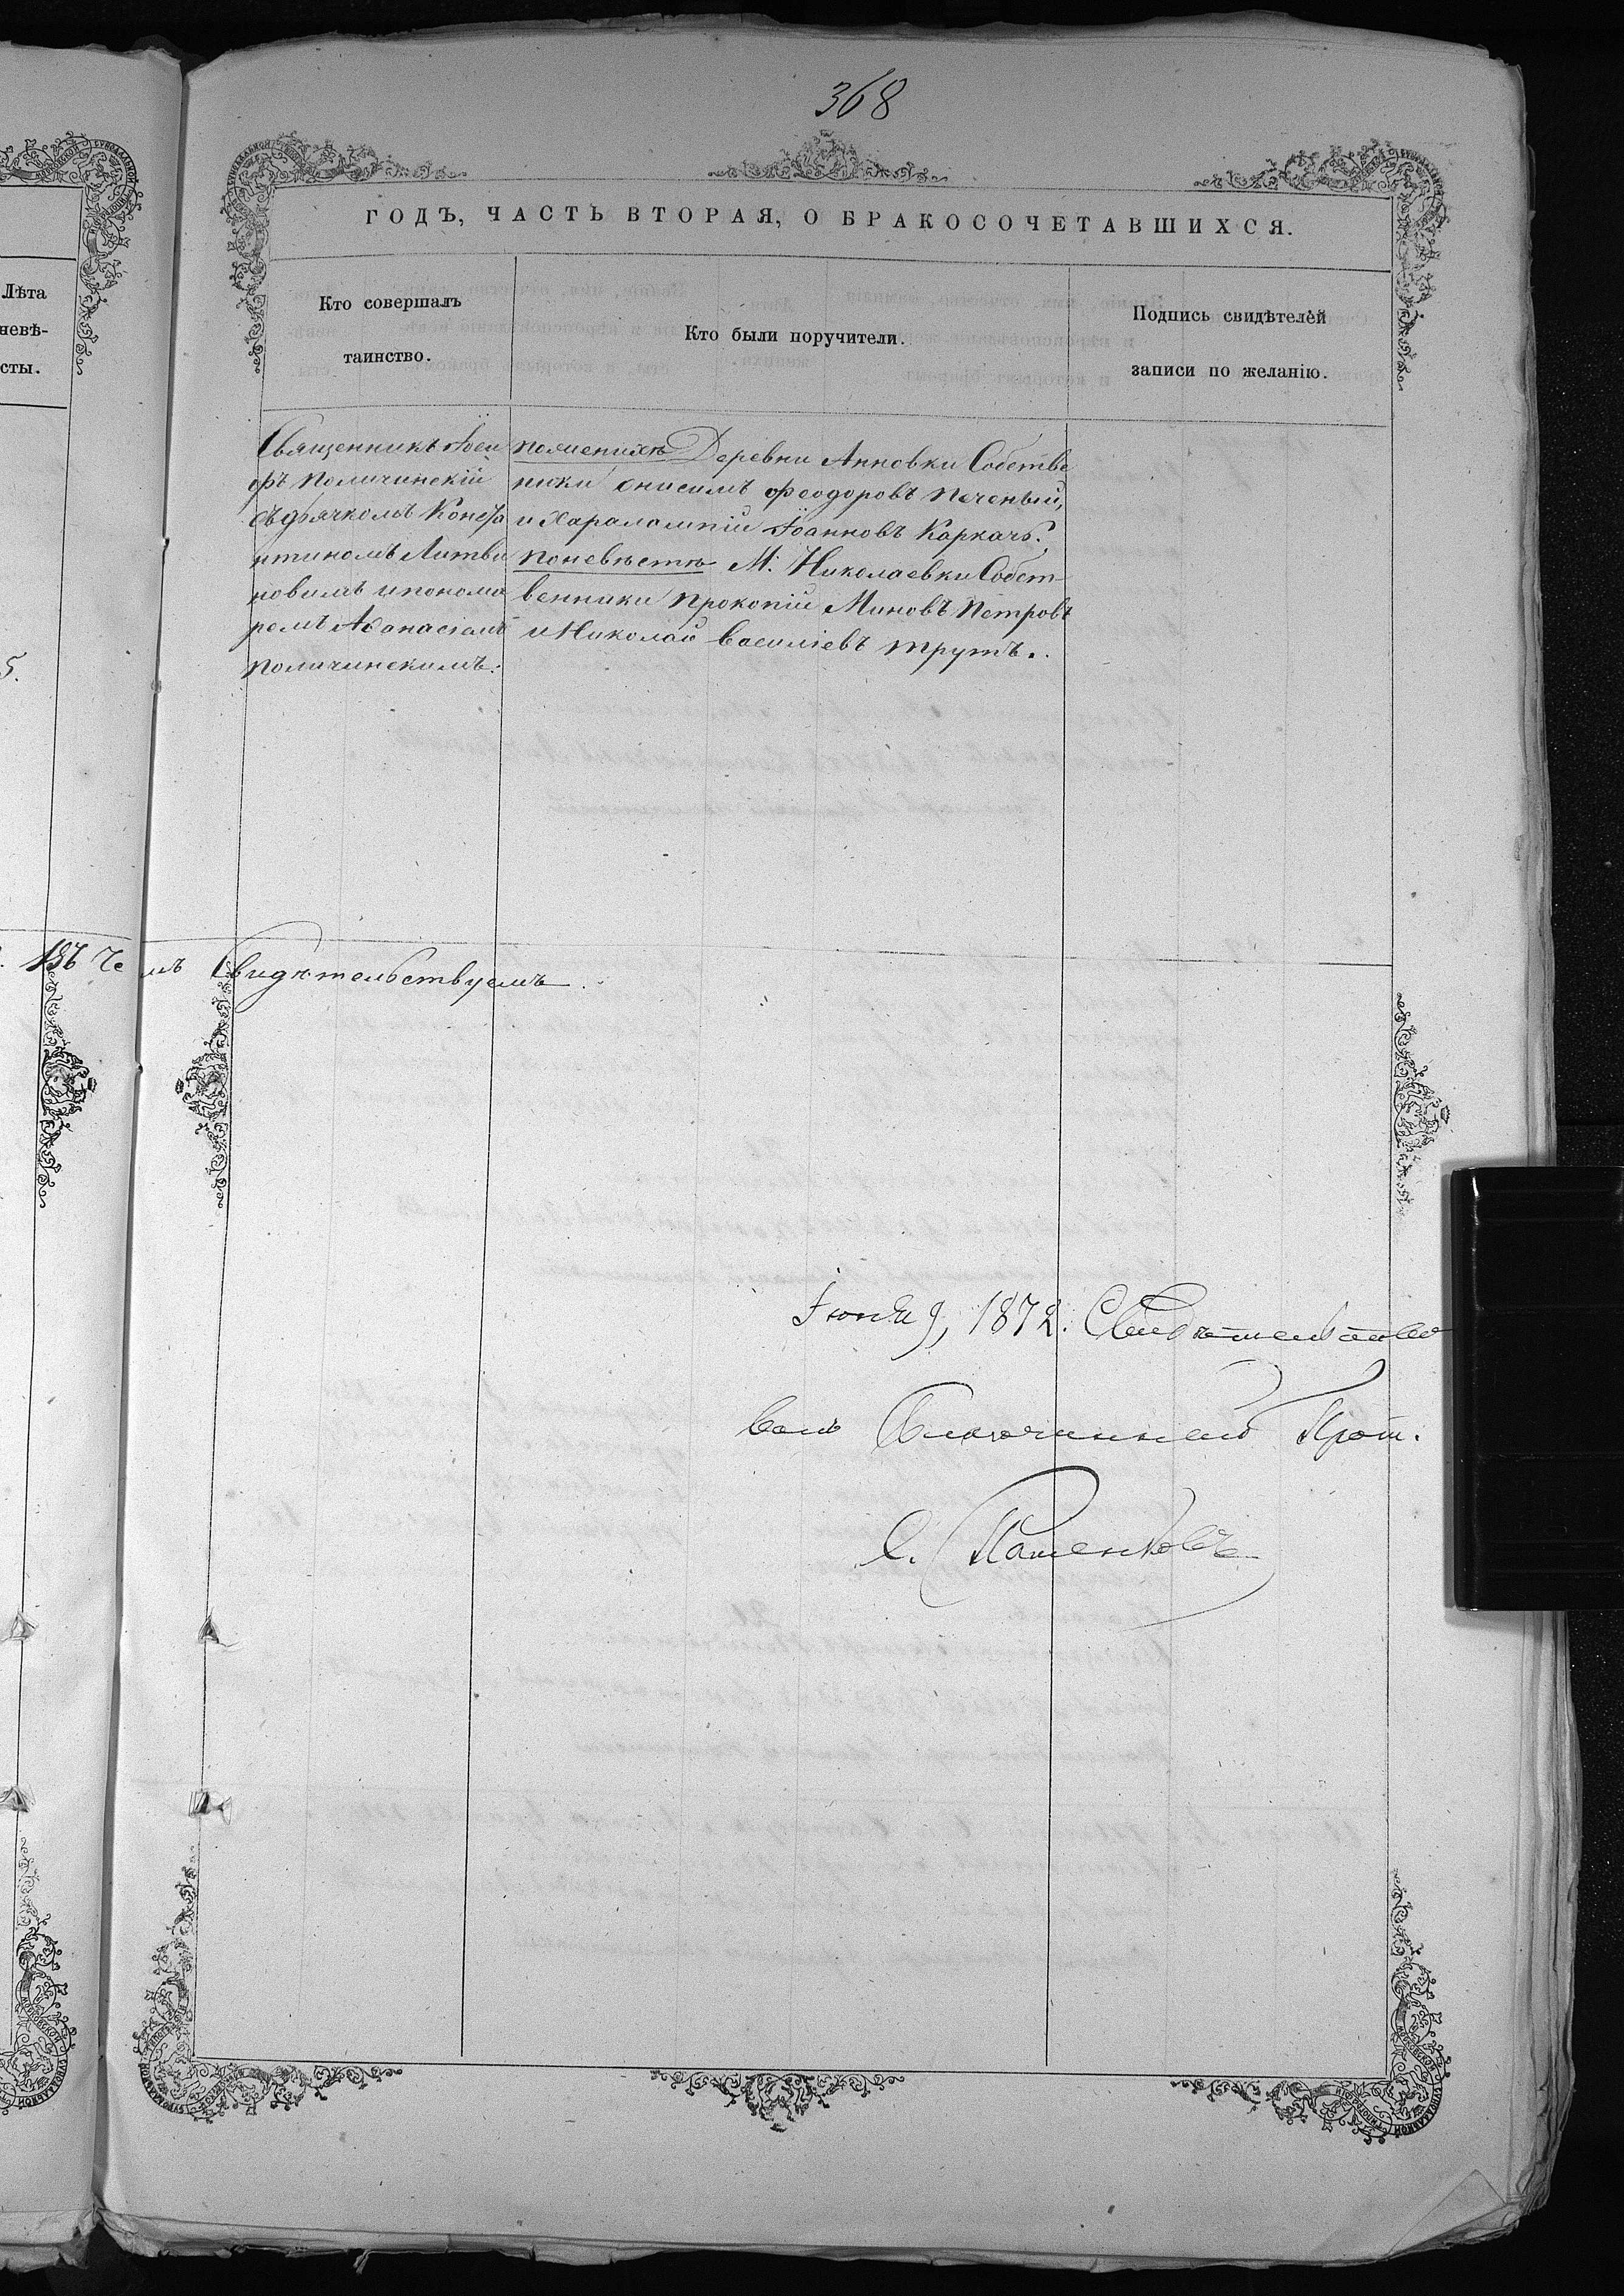 368
ГОДЪ, ЧАСТЬ ВТОРАЯ, О БРАКОСОЧЕТАВШИХСЯ.
Лѣта
невѣ-
сты.
Кто совершалъ
таинство.
Кто были поручители.
Подпись свидѣтелей
записи по желанію.
Священникъ Іоси
фъ Поличинскій
съ дьячкомъ Конста
нтиномъ Литви
новымъ и понома
ремъ Аѳанасіемъ
Поличинскимъ.
по женихѣ Деревни Анновки Собстве
нники Онисимъ Феодоровъ Печеный,
и Харалампій Іоанновъ Каркачъ.
по невѣстѣ М. Николаевки Собст-
венники Прокопій Миновъ Петровъ
и Николай Василіевъ Трутъ.
5.
Въ Чемъ Свидѣтельствуемъ
Іюня 9, 1872. Свидѣтельство
валъ Благочинный Прот.